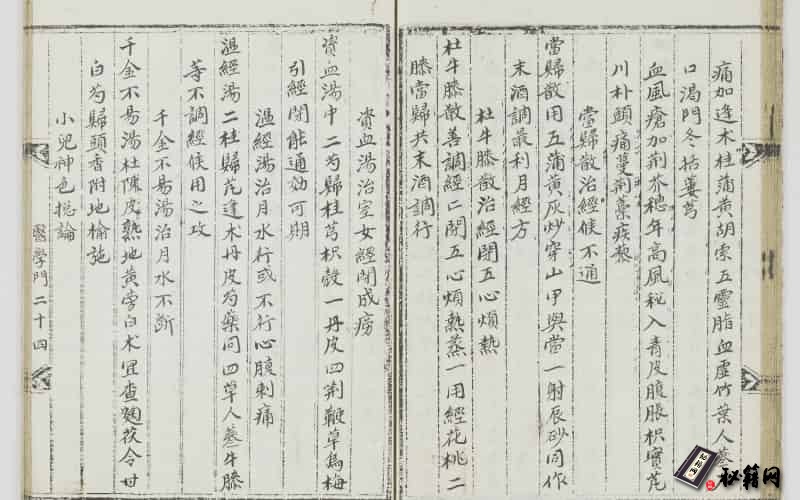 痛加逢木桂蒲黄胡索五靈脂血虛竹葉人蔘
口渴門冬括蔞芎
血風瘡加荆芥穗年高風秘入青皮腹脹枳實芪
川朴頭痛蔓荆藁疾藜
當歸散治經候不通
當歸散用五蒲黄灰炒穿山甲與當一射辰砂同作
末酒調最利月經方
杜牛膝散治經閉五心煩熱
杜牛膝散善調經二閉五心煩熱蒸一用經花桃二
膝當歸共末酒調行
資血湯治室女經閉成癆
資血湯中二芍歸桂芎枳殼一丹皮四荆鞭草烏梅
引經閉能通効可期
溫經湯治月水行或不行心腹刺痛
溫經湯二桂歸芪逢术丹皮芍藥同四草人蔘牛膝
等不調經候用之攻
千金不易湯治月水不斷
千金不易湯杜陳皮熟地黄旁白术罡查麴茯令甘
白芍歸頭香附地榆施
小兒神色捴論
醫學門二十四
秘籍网